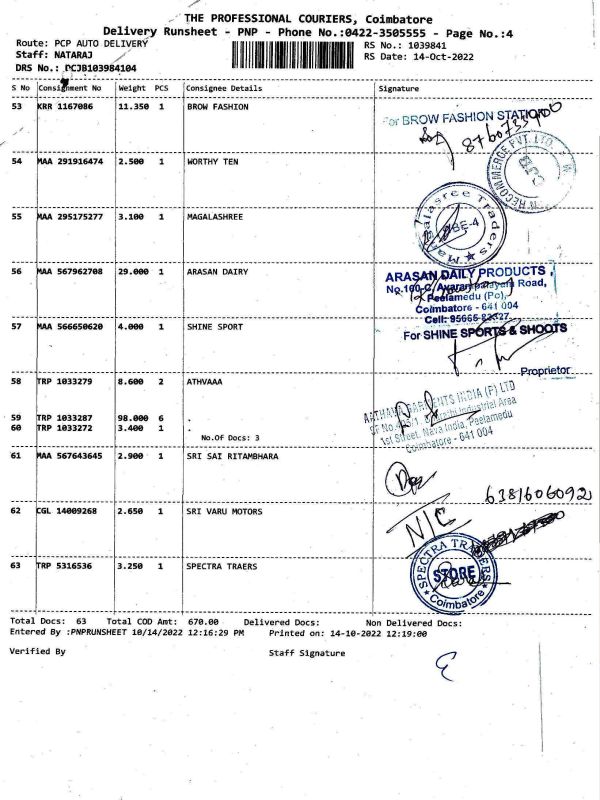 THE PROFESSIONAL COURIERS, Coimbatore
Delivery Runsheet - PNP - Phone No.:0422-3505555 - Page No.:4
Route: PCP AUTO DELIVERY
RS No.: 1039841
Staff: NATARAJ
RS Date: 14-Oct-2022
DRS No.: PCJB103984104
S No Consignment No Weight PCS Consignee Details Signature
53 KRR 1167086 11.350 1 BROW FASHION
For BROW FASHION STATION
54 MAA 291916474 2.500 1 WORTHY TEN
RECOMMERCE PVT. LTD.
55 MAA 295175277 3.100 1 MAGALASHREE
Magalasree Traders
CBE-4
56 MAA 567962708 29.000 1 ARASAN DAIRY
ARASAN DAILY PRODUCTS
No.160-C, Avarampalayam Road,
Peelamedu (Po),
Coimbatore - 641 004
57 MAA 566650620 4.000 1 SHINE SPORT
For SHINE SPORTS & SHOOTS
Proprietor
58 TRP 1033279 8.600 2 ATHVAAA
59 TRP 1033287 98.000 6 .
60 TRP 1033272 3.400 1 .
No.Of Docs: 3
GARMENTS INDIA (P) LTD
Industrial Area
1st Street, Nava India, Peelamedu
Coimbatore - 641 004
61 MAA 567643645 2.900 1 SRI SAI RITAMBHARA
6381606092
62 CGL 14009268 2.650 1 SRI VARU MOTORS
N/C
63 TRP 5316536 3.250 1 SPECTRA TRAERS
SPECTRA TRADERS
STORE
Coimbatore
Total Docs: 63 Total COD Amt: 670.00 Delivered Docs: Non Delivered Docs:
Entered By :PNPRUNSHEET 10/14/2022 12:16:29 PM Printed on: 14-10-2022 12:19:00
Verified By Staff Signature